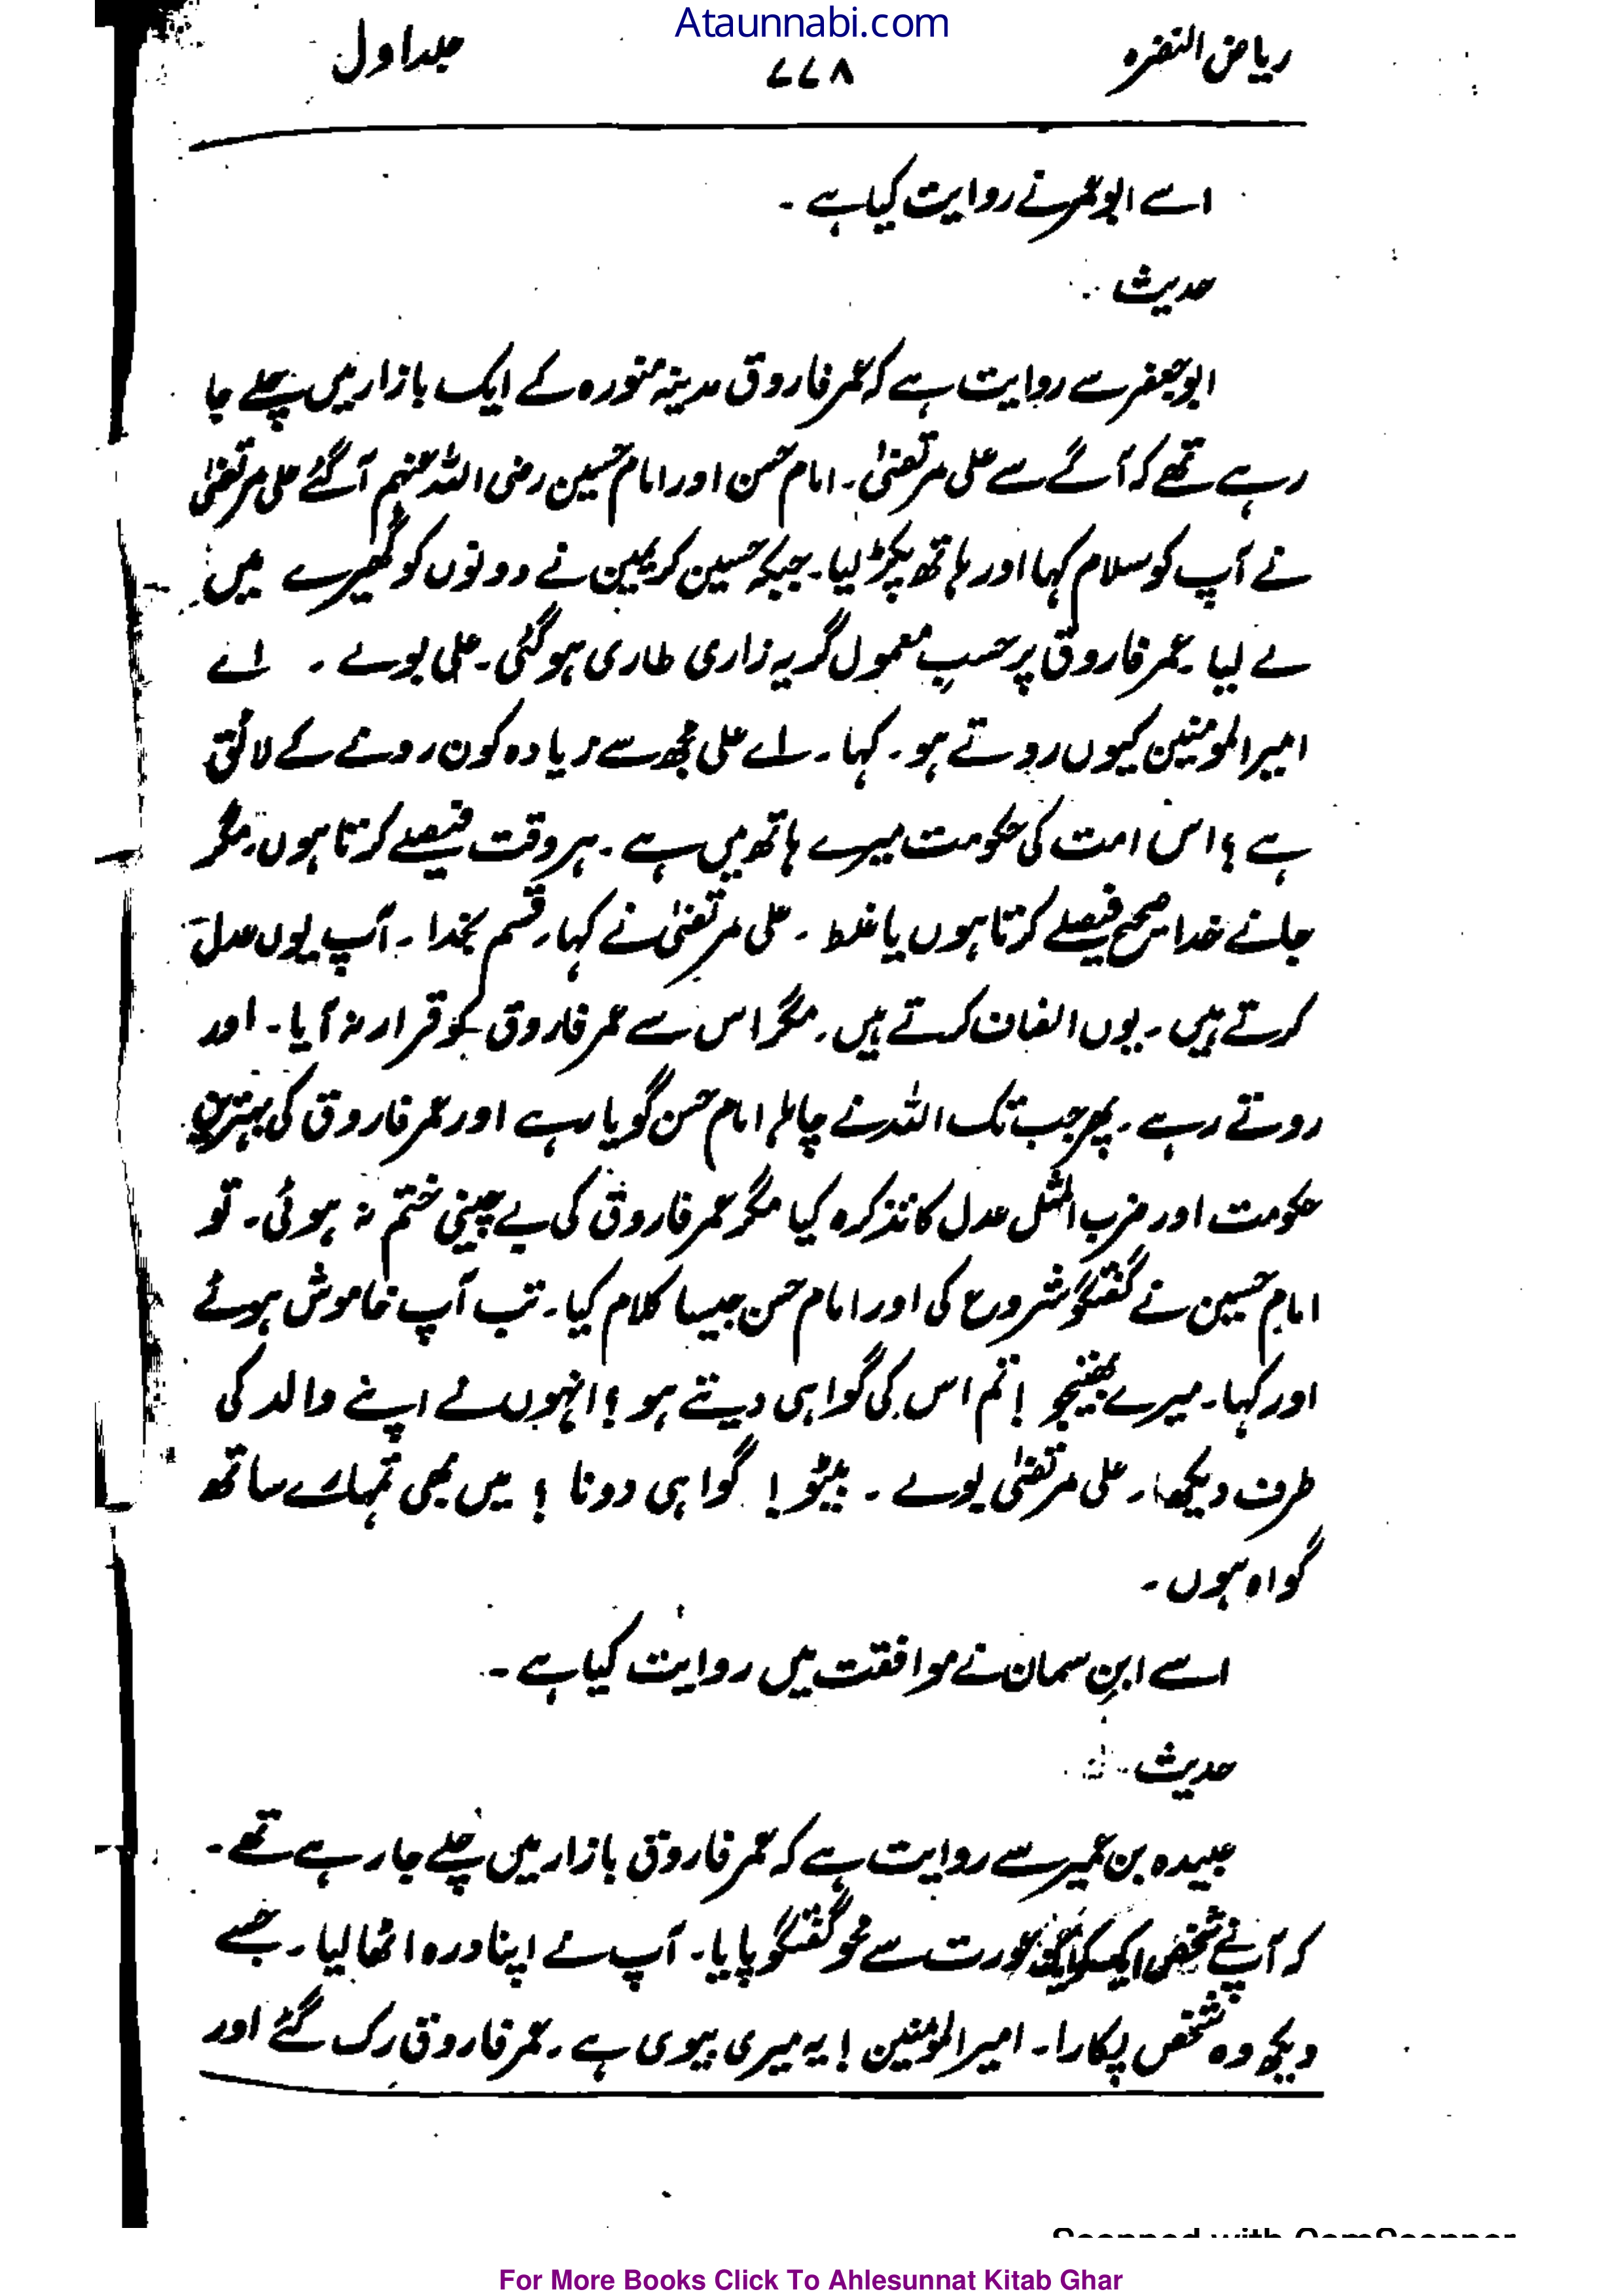 Ataunnabi.com
ریاض النضرہ ۷۷۸ جلد اول
اسے ابو عمر نے روایت کیا ہے۔
حدیث
ابو جعفر سے روایت ہے کہ عمر فاروق مدینہ منورہ کے ایک بازار میں چلے جا
رہے تھے کہ آگے سے علی مرتضیٰ۔ امام حسن اور امام حسین رضی اللہ عنہم آگئے علی مرتضیٰ
نے آپ کو سلام کہا اور ہاتھ پکڑ لیا۔ جبکہ حسین کریمین نے دونوں کو گھیرے میں
لے لیا۔ عمر فاروق پر حسبِ معمول گریہ زاری طاری ہو گئی۔ علی بولے۔ اے
امیر المومنین کیوں روتے ہو۔ کہا۔ اے علی مجھ سے زیادہ کون رونے کے لائق
ہے؟ اس امت کی حکومت میرے ہاتھ میں ہے۔ ہر وقت فیصلے کرتا ہوں۔ مگر
جانے خدا صحیح فیصلے کرتا ہوں یا غلط۔ علی مرتضیٰ نے کہا۔ قسم بخدا۔ آپ یوں عدل
کرتے ہیں۔ یوں انصاف کرتے ہیں۔ مگر اس سے عمر فاروق کو قرار نہ آیا۔ اور
روتے رہے۔ پھر جب تک اللہ نے چاہا امام حسن گویا رہے اور عمر فاروق کی بہترین
حکومت اور ضرب المثل عدل کا تذکرہ کیا مگر عمر فاروق کی بے چینی ختم نہ ہوئی۔ تو
امام حسین نے گفتگو شروع کی اور امام حسن جیسا کلام کیا۔ تب آپ خاموش ہوئے
اور کہا۔ میرے بھتیجو! تم اس کی گواہی دیتے ہو؟ انہوں نے اپنے والد کی
طرف دیکھا۔ علی مرتضیٰ بولے۔ بیٹو! گواہی دونا! میں بھی تمہارے ساتھ
گواہ ہوں۔
اسے ابنِ سمان نے موافقت میں روایت کیا ہے۔
حدیث
عبیدہ بن عمیر سے روایت ہے کہ عمر فاروق بازار میں چلے جا رہے تھے۔
کہ آپ نے شخص ایک کو عورت سے محو گفتگو پایا۔ آپ نے اپنا درہ اٹھا لیا۔ جسے
دیکھ وہ شخص پکارا۔ امیر المومنین! یہ میری بیوی ہے۔ عمر فاروق رک گئے اور
Scanned with CamScanner
For More Books Click To Ahlesunnat Kitab Ghar